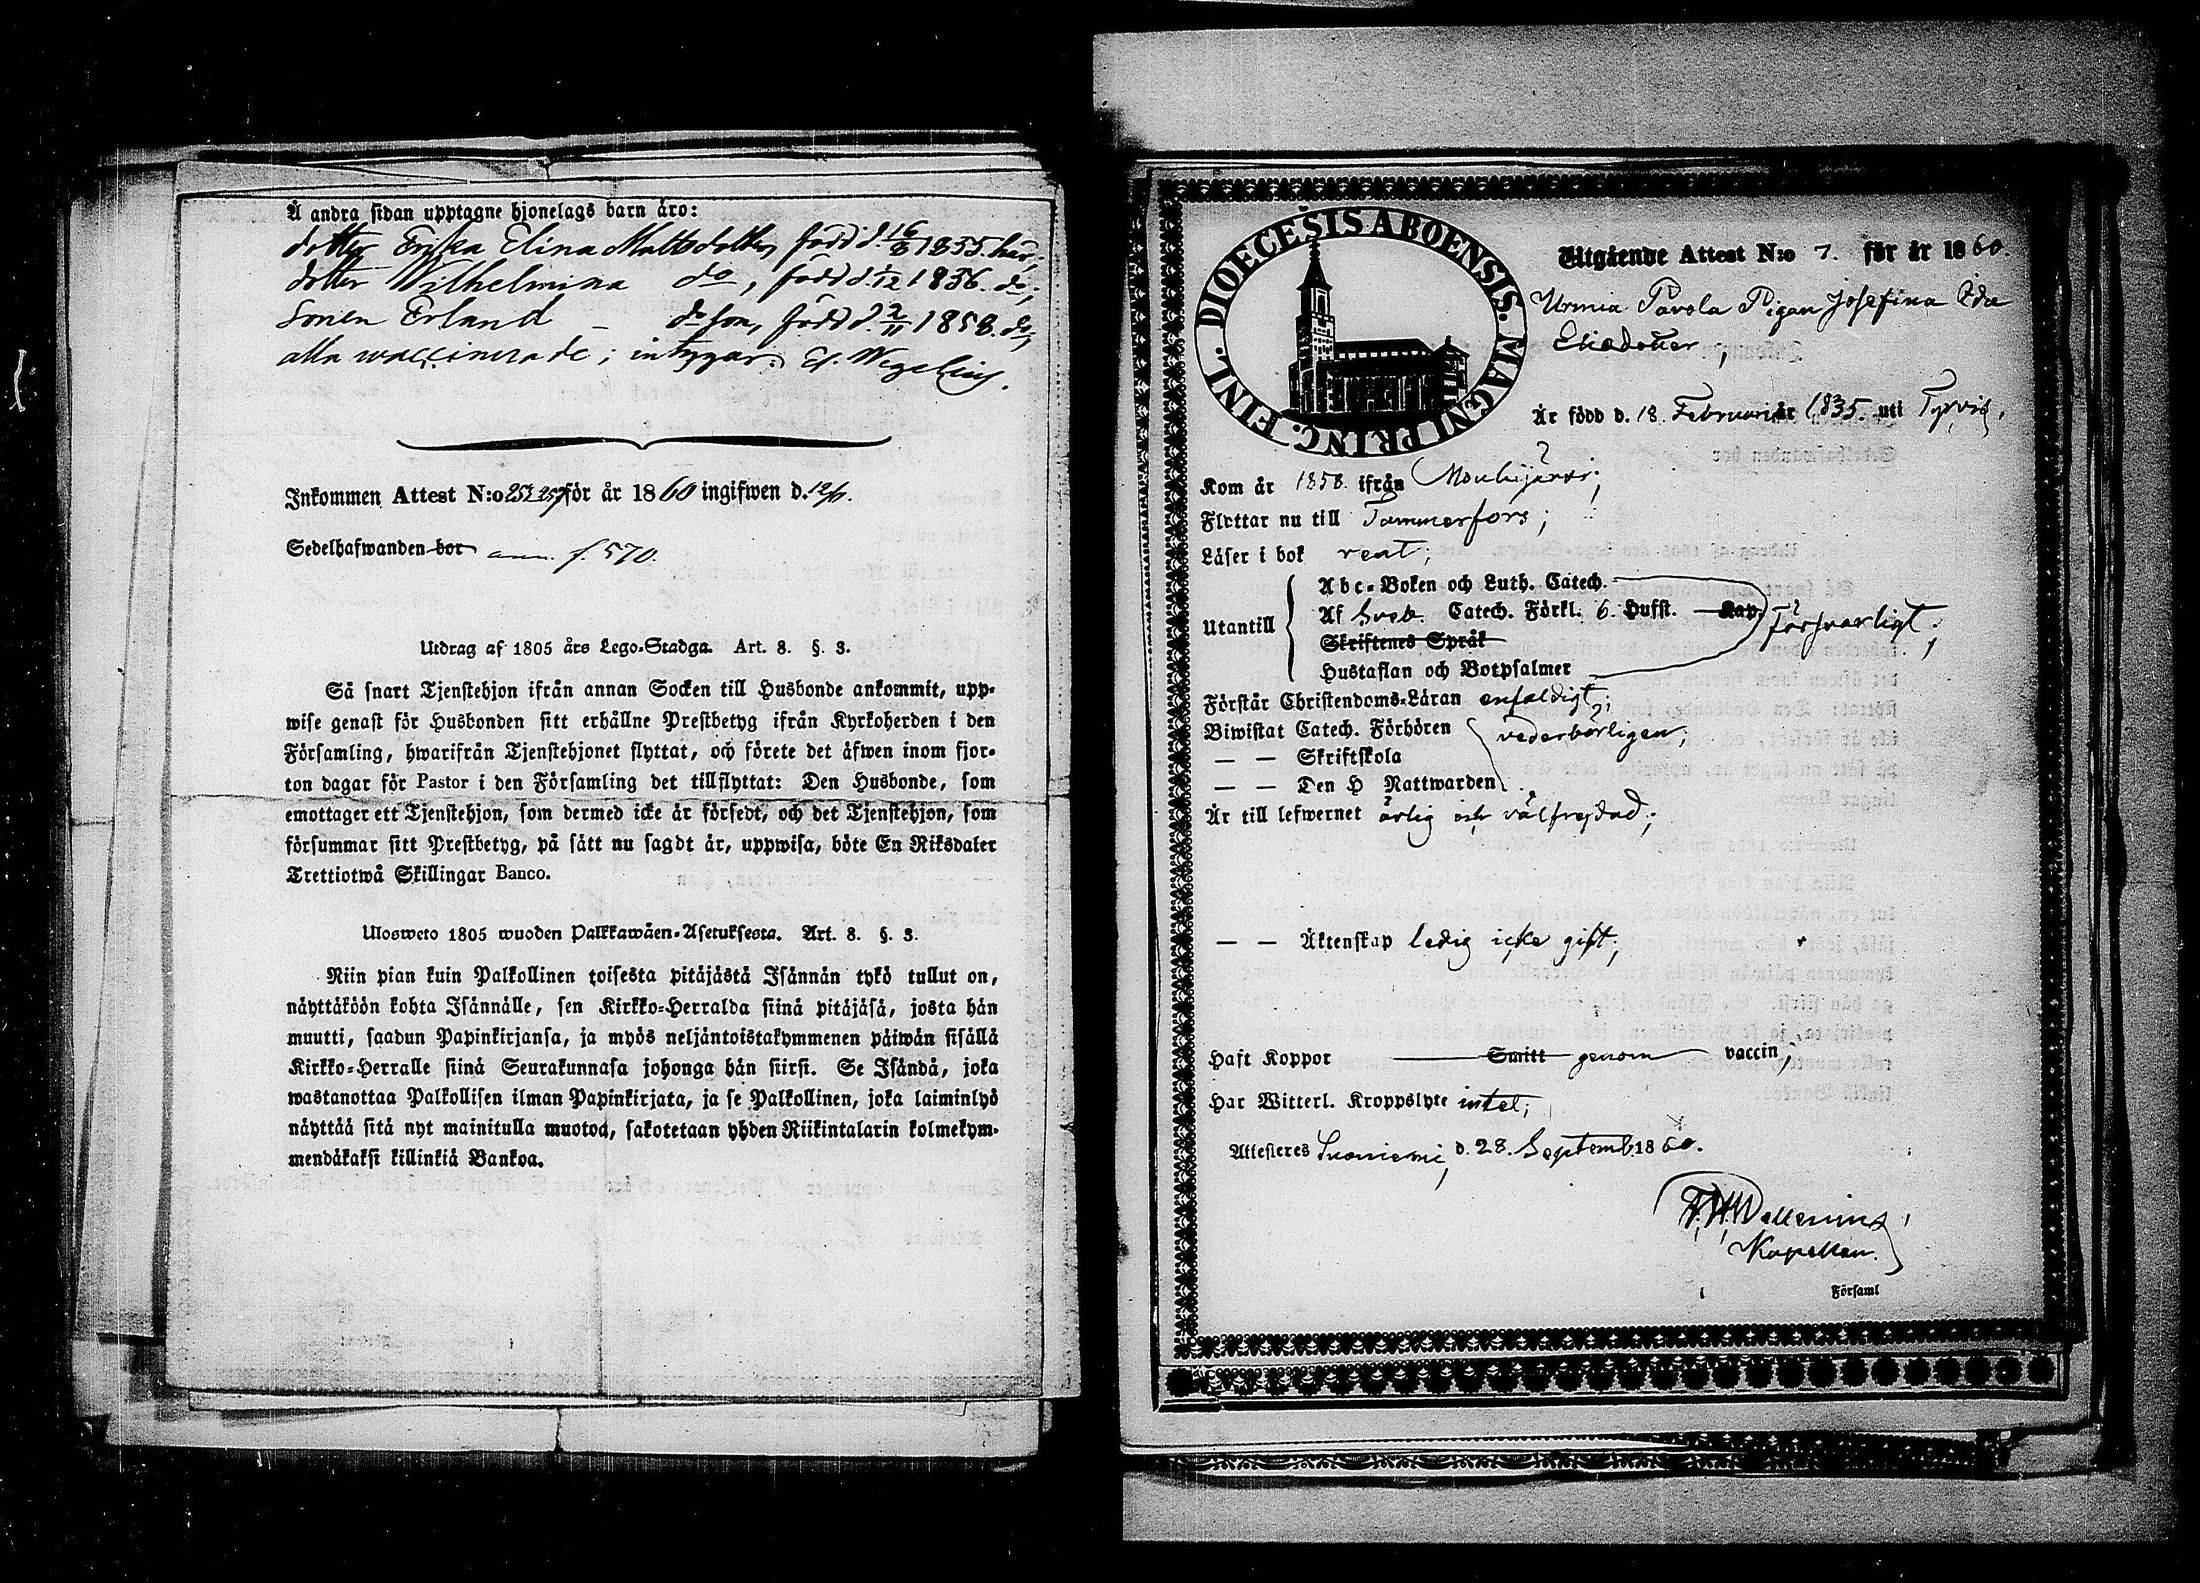 Å andra sidan upptagne hjonelags barn äro:
dotter Erika Elina Mattsdotter, född d. 16/8 1855. här;
dotter Wilhelmina do, född d. 1/12 1856. do;
Sonen Erland – do son, född d. 2/11 1858. do,
alla waccinerade; intygar. Ef. Wegelius.
Inkommen Attest N:o 252-257 för år 1860 ingifwen d. 12/11.
Sedelhafwanden bor ann. f. 570.
Utdrag af 1805 års Lego-Stadga. Art. 8. §. 3.
Så snart Tjenstehjon ifrån annan Socken till Husbonde ankommit, upp-
wise genast för Husbonden sitt erhållne Prestbetyg ifrån Kyrkoherden i den
Församling, hwarifrån Tjenstehjonet flyttat, och förete det äfwen inom fjor-
ton dagar för Pastor i den Församling det tillflyttat: Den Husbonde, som
emottager ett Tjenstehjon, som dermed icke är försedt, och det Tjenstehjon, som
försummar sitt Prestbetyg, på sätt nu sagdt är, uppwisa, böte En Riksdaler
Trettiotwå Skillingar Banco.
Ulosweto 1805 wuoden Palkkawäen-Asetuksesta. Art. 8. §. 3.
Niin pian kuin Palkollinen toisesta pitäjästä Isännän tykö tullut on,
näyttäköön kohta Isännälle, sen Kirkko-Herralda siinä pitäjäsä, josta hän
muutti, saadun Papinkirjansa, ja myös neljäntoistakymmenen päiwän sisällä
Kirkko-Herralle siinä Seurakunnasa johonga hän siirsi. Se Isändä, joka
wastanottaa Palkollisen ilman Papinkirjata, ja se Palkollinen, joka laiminlyö
näyttää sitä nyt mainitulla muotoa, sakotetaan yhden Riikintalarin kolmekym-
mendäkaksi killinkiä Bankoa.
DIOECESIS ABOENSIS. MAGNI PRINC. FINL.
Utgående Attest N:o 7. för år 1860.
Urmia Pavola Pigan Josefina Ida
Eliedotter,
Är född d. 18. Februarii år 1835. uti Tyrvis,
Kom år 1858. ifrån Mouhijärvi;
Flyttar nu till Tammerfors;
Läser i bok rent;
Utantill
Abc-Boken och Luth. Catech.
Af Sveb. Catech. Förkl. 6. Hufst. Kap.
Försvarligt;
Skriftenes Språk
Hustaflan och Botpsalmer
Förstår Christendoms-Läran enfaldigt;
Biwistat Catech. Förhören vederbörligen;
— — Skriftskola
— — Den H Nattwarden
Är till lefwernet ärlig och välfrejdad;
— — Äktenskap ledig icke gift;
Haft Koppor Smitt genom vaccin;
Har Witterl. Kroppslyte intet;
Attesteres Suoniemi, d. 28. Septemb. 1860.
Kapellan.
Församl